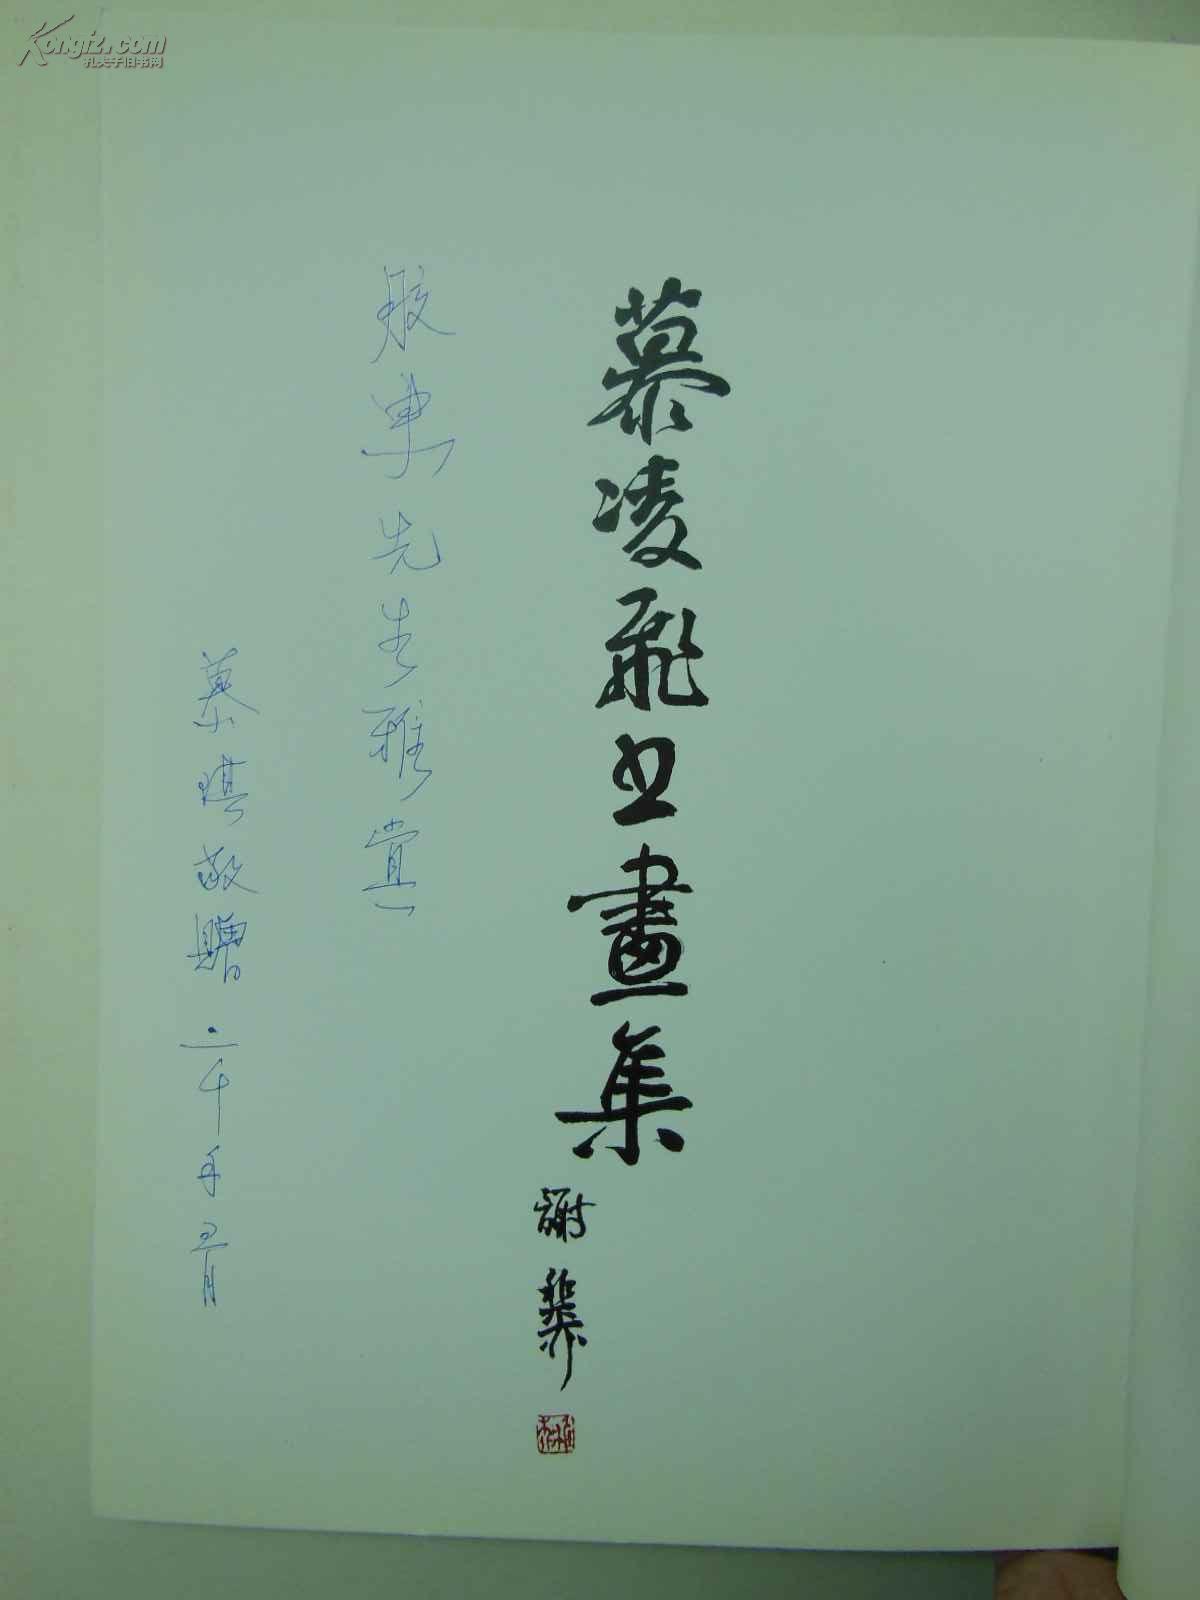 慕凌飛书畫集
謝稚柳
殷東先生雅賞
慕琪敬贈 二千年五月
Kongfz.com
孔夫子旧书网